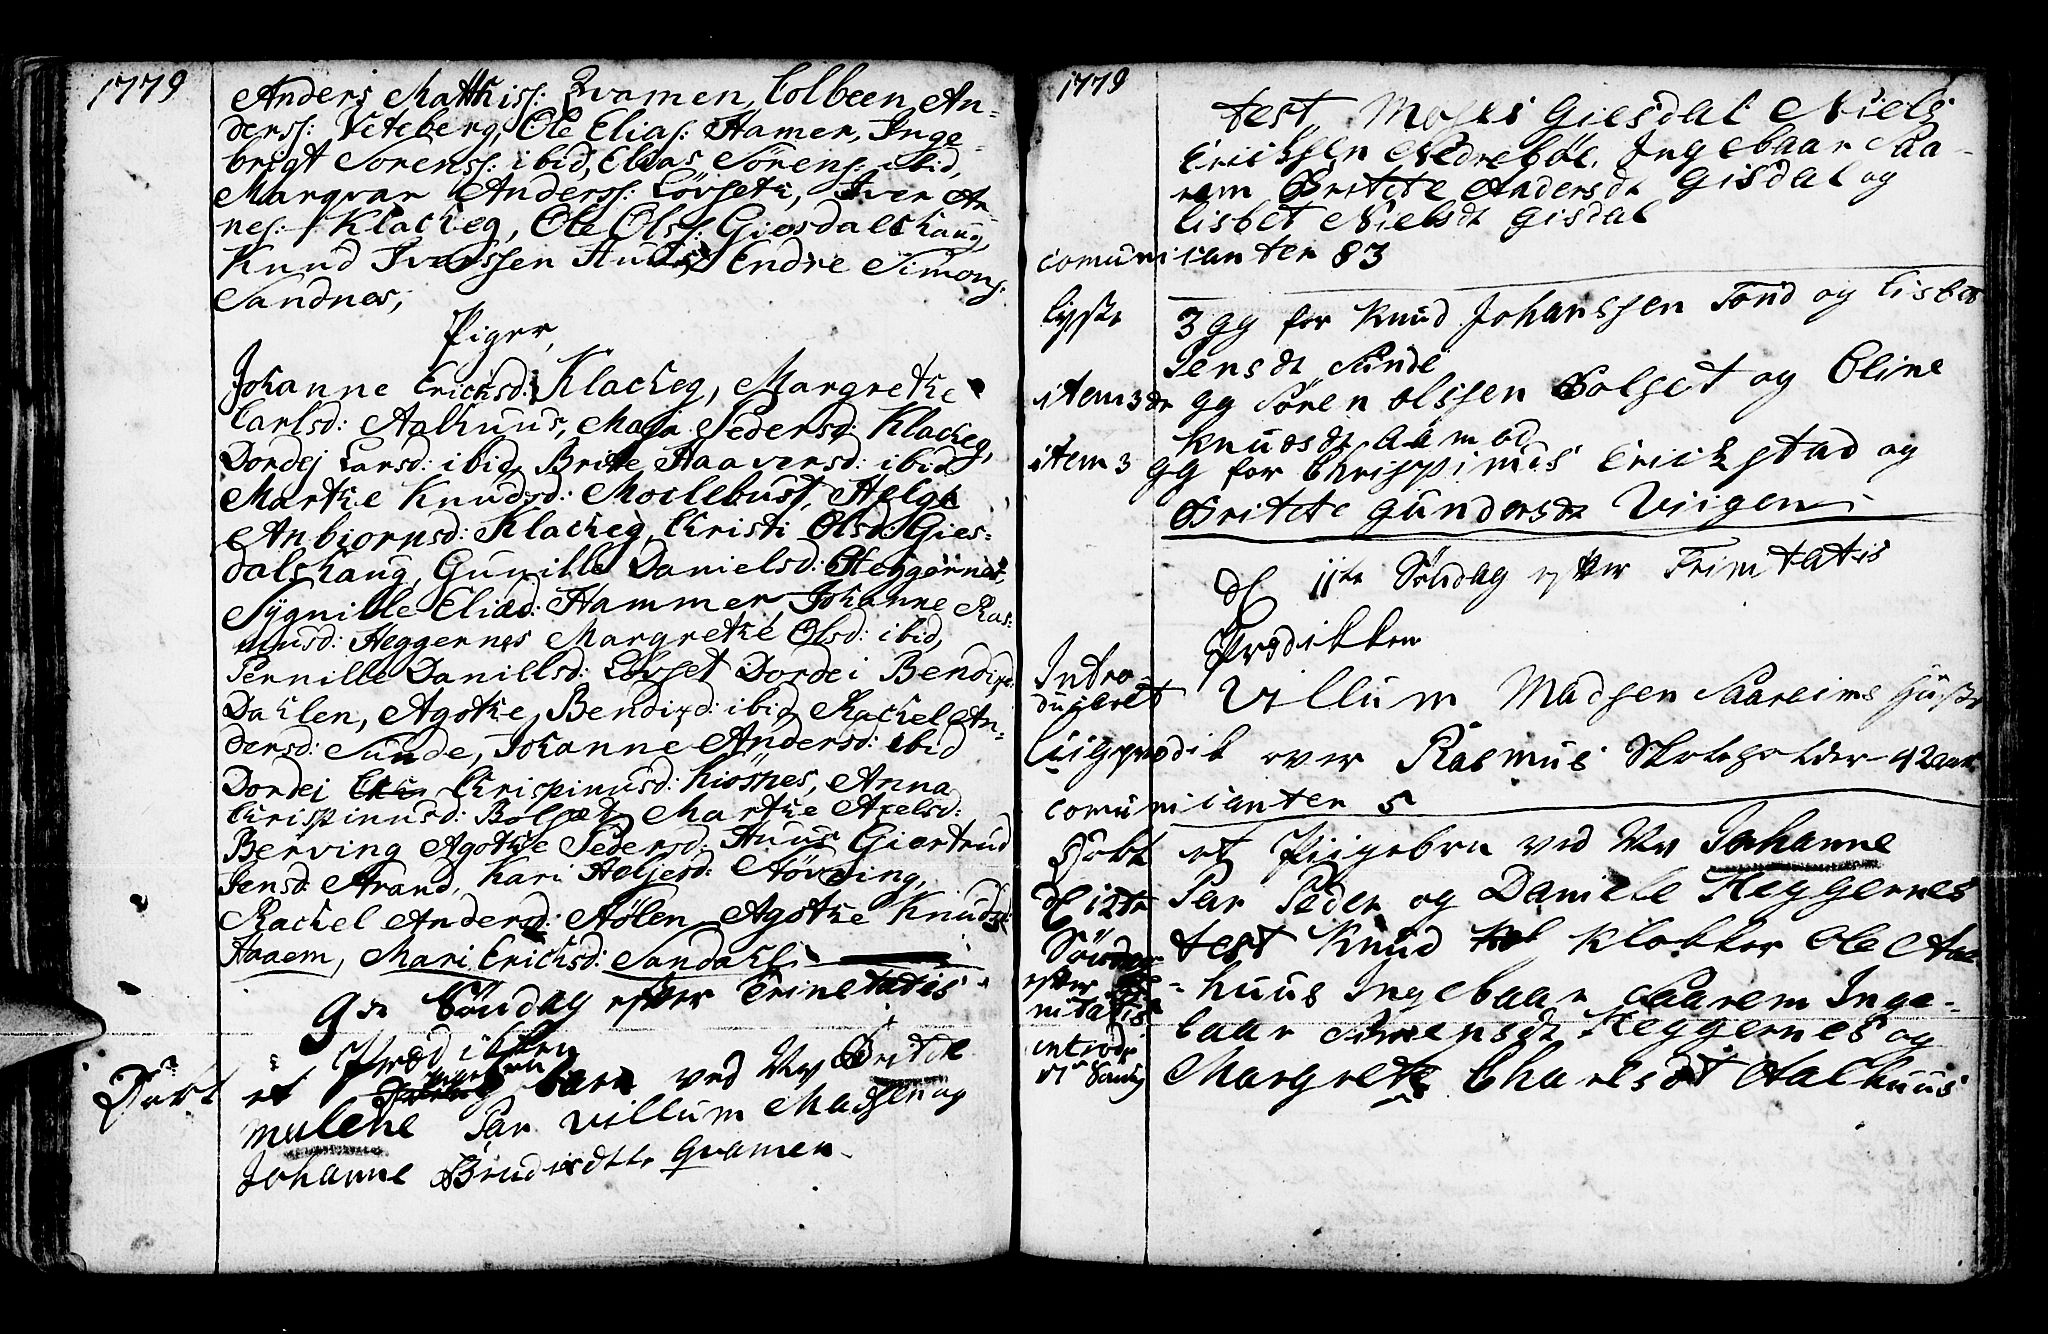 1779
Anders Mathiss: Qvamen, Colbeen An-
derss: Viteberg, Ole Elias: Hamer, Inge-
brigt Sorenss: ibid, Elias Sörens: ibid,
Marqvar Anderss: Lövseth, Iver Ar-
nes: Klackeg, Ole Olss: Giesdalshaug,
Knud Iverssen Huus, Endre Simons:
Sandnes,
Piger,
Johanne Ericksd: Klackeg, Margrethe
Carlsd: Aalhuus, Mari Pedersd: Klackeg,
Dordej Larsd: ibid, Brite Haaversd: ibid
Marthe Knudsd: Moclebust, Helge
Anbiornsd: Klackeg, Christi Olsd: Gies-
dalshaug, Gunille Danielsd: Heggernes,
Sygnille Eliæd: Hammer, Johanne Ras-
musd: Heggernes Margrethe Olsd: ibid,
Pernille Danillsd: Lövset Dordei Bendixd:
Dahlen, Agothe Bendixd: ibid, Rachel An-
dersd: Sunde, Johanne Andersd: ibid
Dordej Chrispinusd: Kiösnes, Anna
Chrispinusd: Bolset Marthe Axelsd:
Berving Agothe Pedersd: Huus Giertrud
Jensd: Strand, Kari Heljesd: Növding,
Rachel Andersd: Stølen Agothe Knudsd:
Haaem, Mari Ericksd: Sandahl
9de Söndag efter Trinetatis
Prædikken
Døbt et pigebarn ved Nv Britthe
mulene Par Villum Madsen og
Johanne Bendixdtr Qvamen
1779
test, Moses Giesdal Niels
Ericksen Nedrebøe, Ingebaar Saa-
rem Britthe Andersdt Gisdal og
Lisbet Nielsdt Gisdal
comunicanter 83
lyste 3 gg for Knud Johanssen Tond og Lisbet
Jensdt Sunde
item 3de gg Sören olssen Bolset og Oline
Knudsdt Aamod
item 3 gg for Chrispinus Erickstad og
Britte Gundersdt Viigen
d 11te Söndag efter Trinitatis
Prædikken
Intro
duceret Villum Madsen Saareims Hustr
Liigprædik over Rasmus 42 aar
comunicanter 5
Døbt et Piigebrn ved Nv Johanne
d 12te Par Peder og Daniele Heggernes
Söndag test Knud Klokker Ole Aal-
efter huus Ingebaar Saarem Inge-
nitatis baar Heggernes og
introd: Margrete Charlsdt Aalhuus